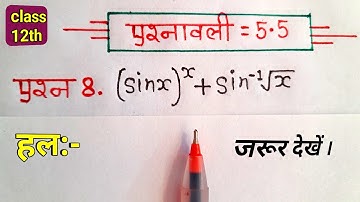 class
12th
प्रश्नावली = 5.5
प्रश्न 8. (sinx)ˣ + sin⁻¹√x
हल:-
जरूर देखें।